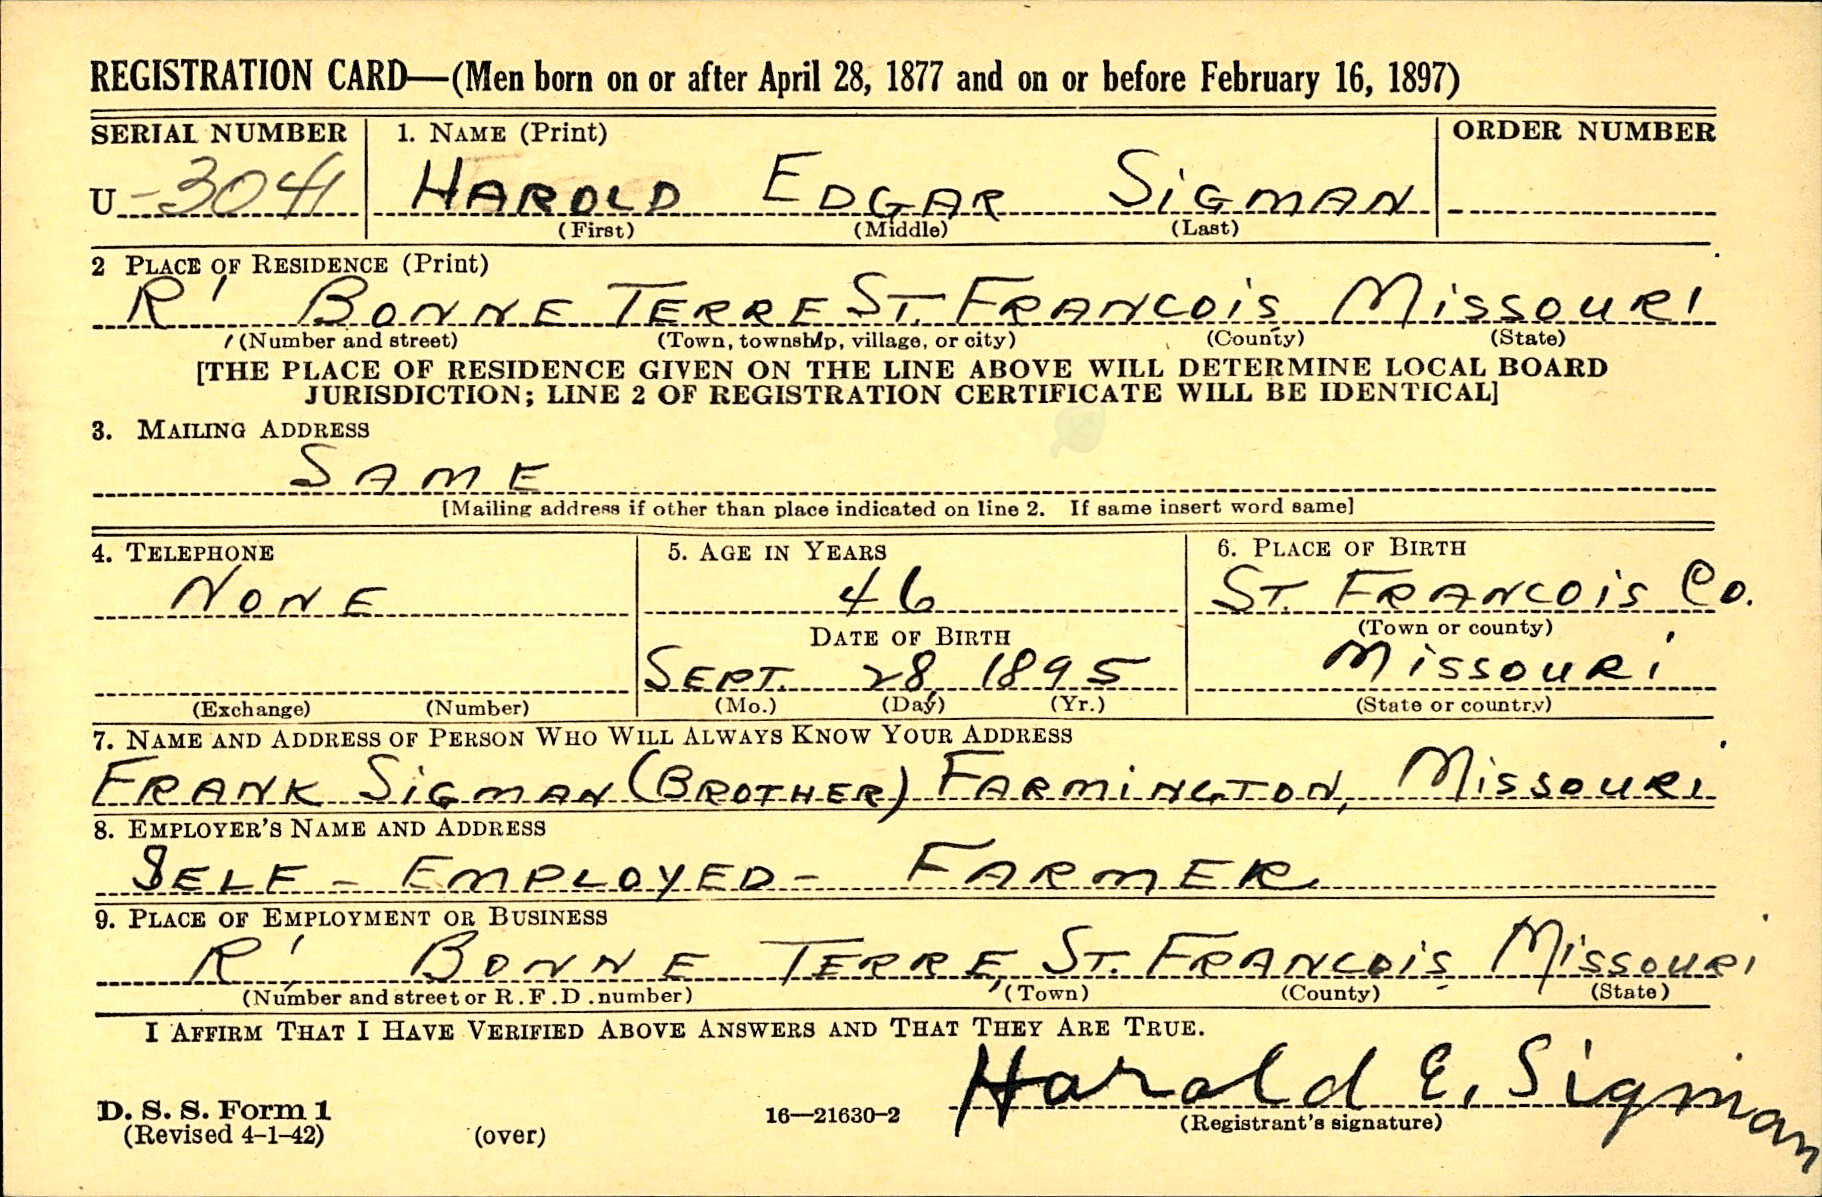 REGISTRATION CARD—(Men born on or after April 28, 1877 and on or before February 16, 1897)
SERIAL NUMBER 1. NAME (Print) ORDER NUMBER
U -3041 HAROLD EDGAR SIGMAN
(First) (Middle) (Last)
2 PLACE OF RESIDENCE (Print)
R' BONNE TERRE ST. FRANCOIS MISSOURI
(Number and street) (Town, township, village, or city) (County) (State)
[THE PLACE OF RESIDENCE GIVEN ON THE LINE ABOVE WILL DETERMINE LOCAL BOARD
JURISDICTION; LINE 2 OF REGISTRATION CERTIFICATE WILL BE IDENTICAL]
3. MAILING ADDRESS
SAME
[Mailing address if other than place indicated on line 2. If same insert word same]
4. TELEPHONE 5. AGE IN YEARS 6. PLACE OF BIRTH
NONE 46 ST. FRANCOIS CO.
DATE OF BIRTH (Town or county)
SEPT. 28, 1895 MISSOURI
(Exchange) (Number) (Mo.) (Day) (Yr.) (State or country)
7. NAME AND ADDRESS OF PERSON WHO WILL ALWAYS KNOW YOUR ADDRESS
FRANK SIGMAN (BROTHER) FARMINGTON, MISSOURI
8. EMPLOYER'S NAME AND ADDRESS
SELF - EMPLOYED - FARMER
9. PLACE OF EMPLOYMENT OR BUSINESS
R' BONNE TERRE, ST. FRANCOIS MISSOURI
(Number and street or R.F.D. number) (Town) (County) (State)
I AFFIRM THAT I HAVE VERIFIED ABOVE ANSWERS AND THAT THEY ARE TRUE.
Harold E. Sigman
D. S. S. Form 1 16—21630-2 (Registrant's signature)
(Revised 4-1-42) (over)